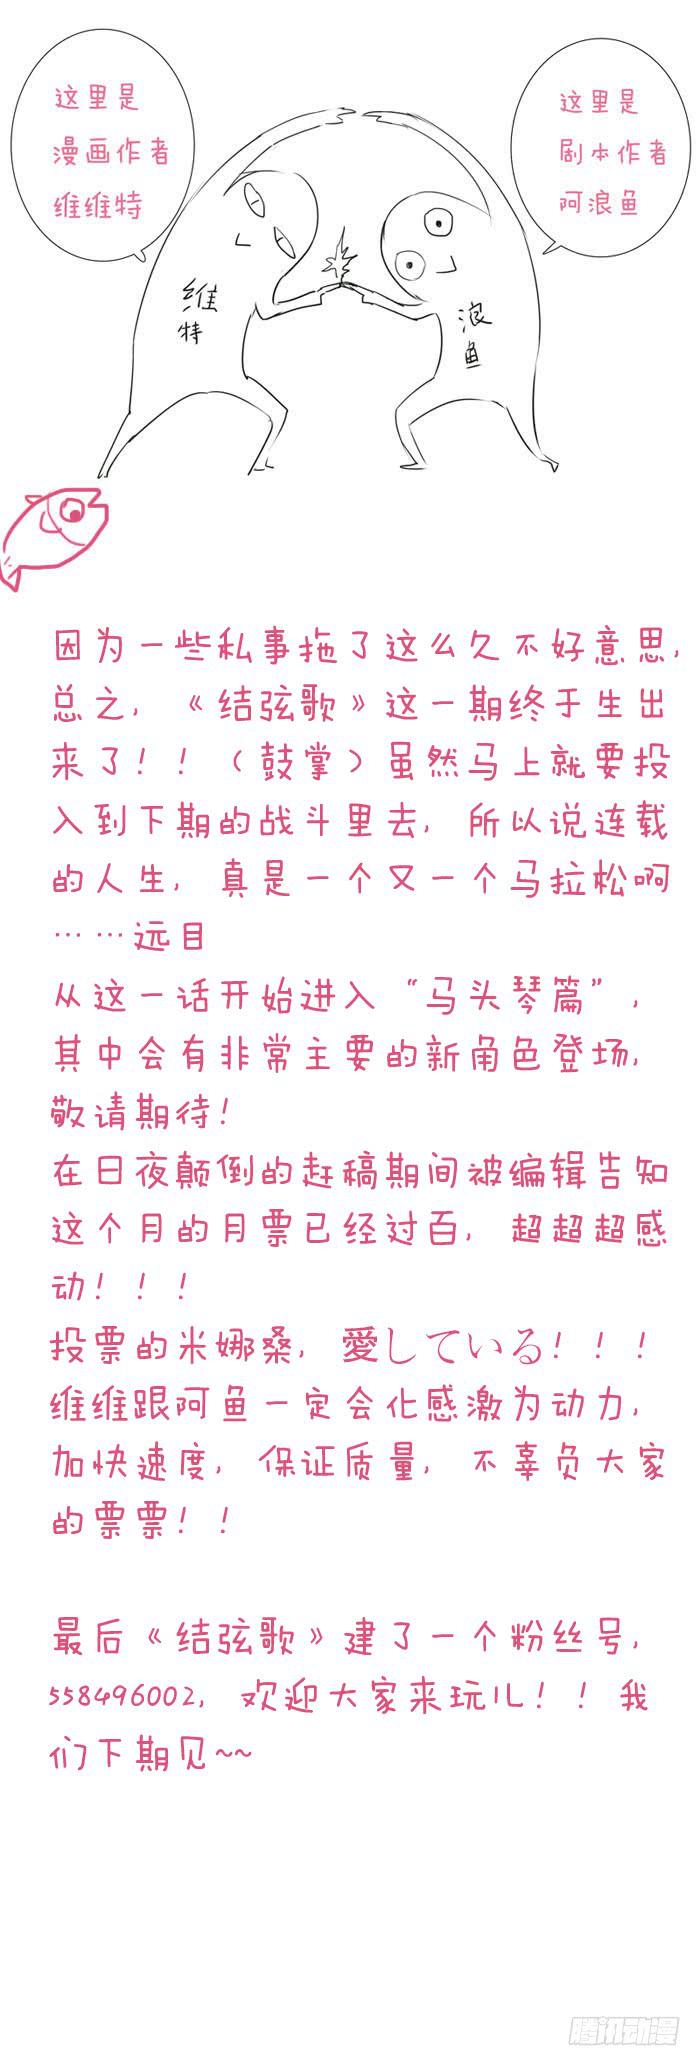 这里是
漫画作者
维维特
这里是
剧本作者
阿浪鱼
维
特
浪
鱼
因为一些私事拖了这么久不好意思，
总之，《结弦歌》这一期终于生出
来了！！（鼓掌）虽然马上就要投
入到下期的战斗里去，所以说连载
的人生，真是一个又一个马拉松啊
……远目
从这一话开始进入“马头琴篇”，
其中会有非常主要的新角色登场，
敬请期待！
在日夜颠倒的赶稿期间被编辑告知
这个月的月票已经过百，超超超感
动！！！
投票的米娜桑，愛している！！！
维维跟阿鱼一定会化感激为动力，
加快速度，保证质量，不辜负大家
的票票！！
最后《结弦歌》建了一个粉丝号，
558496002，欢迎大家来玩儿！！我
们下期见~~
腾讯动漫